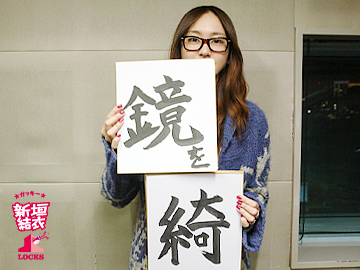 鏡を
綺
ガッキー
新垣
結衣
LOCKS